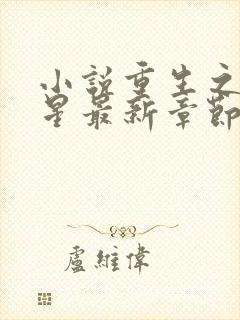 小說重生之
星最新章節
盧維偉